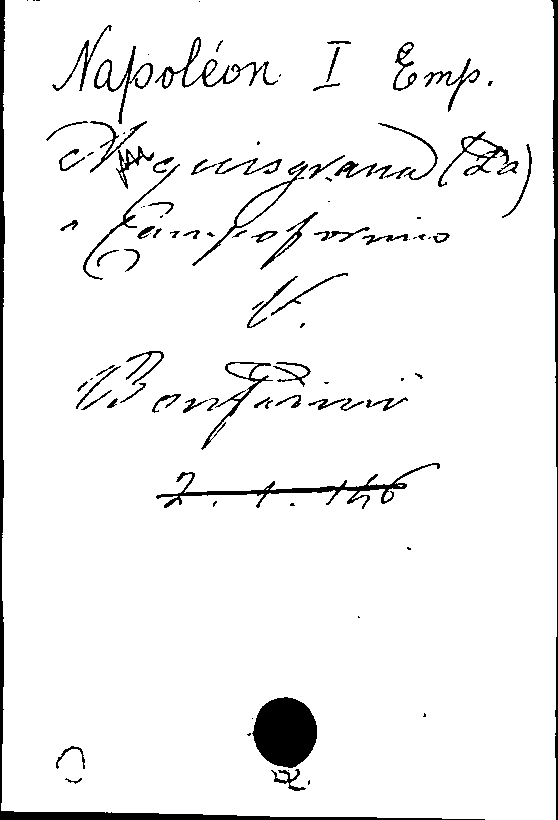 Napoléon I Emp.
Aquisgrana (Da)
a Campoformio
V.
Bonfirini
2. 1. 146